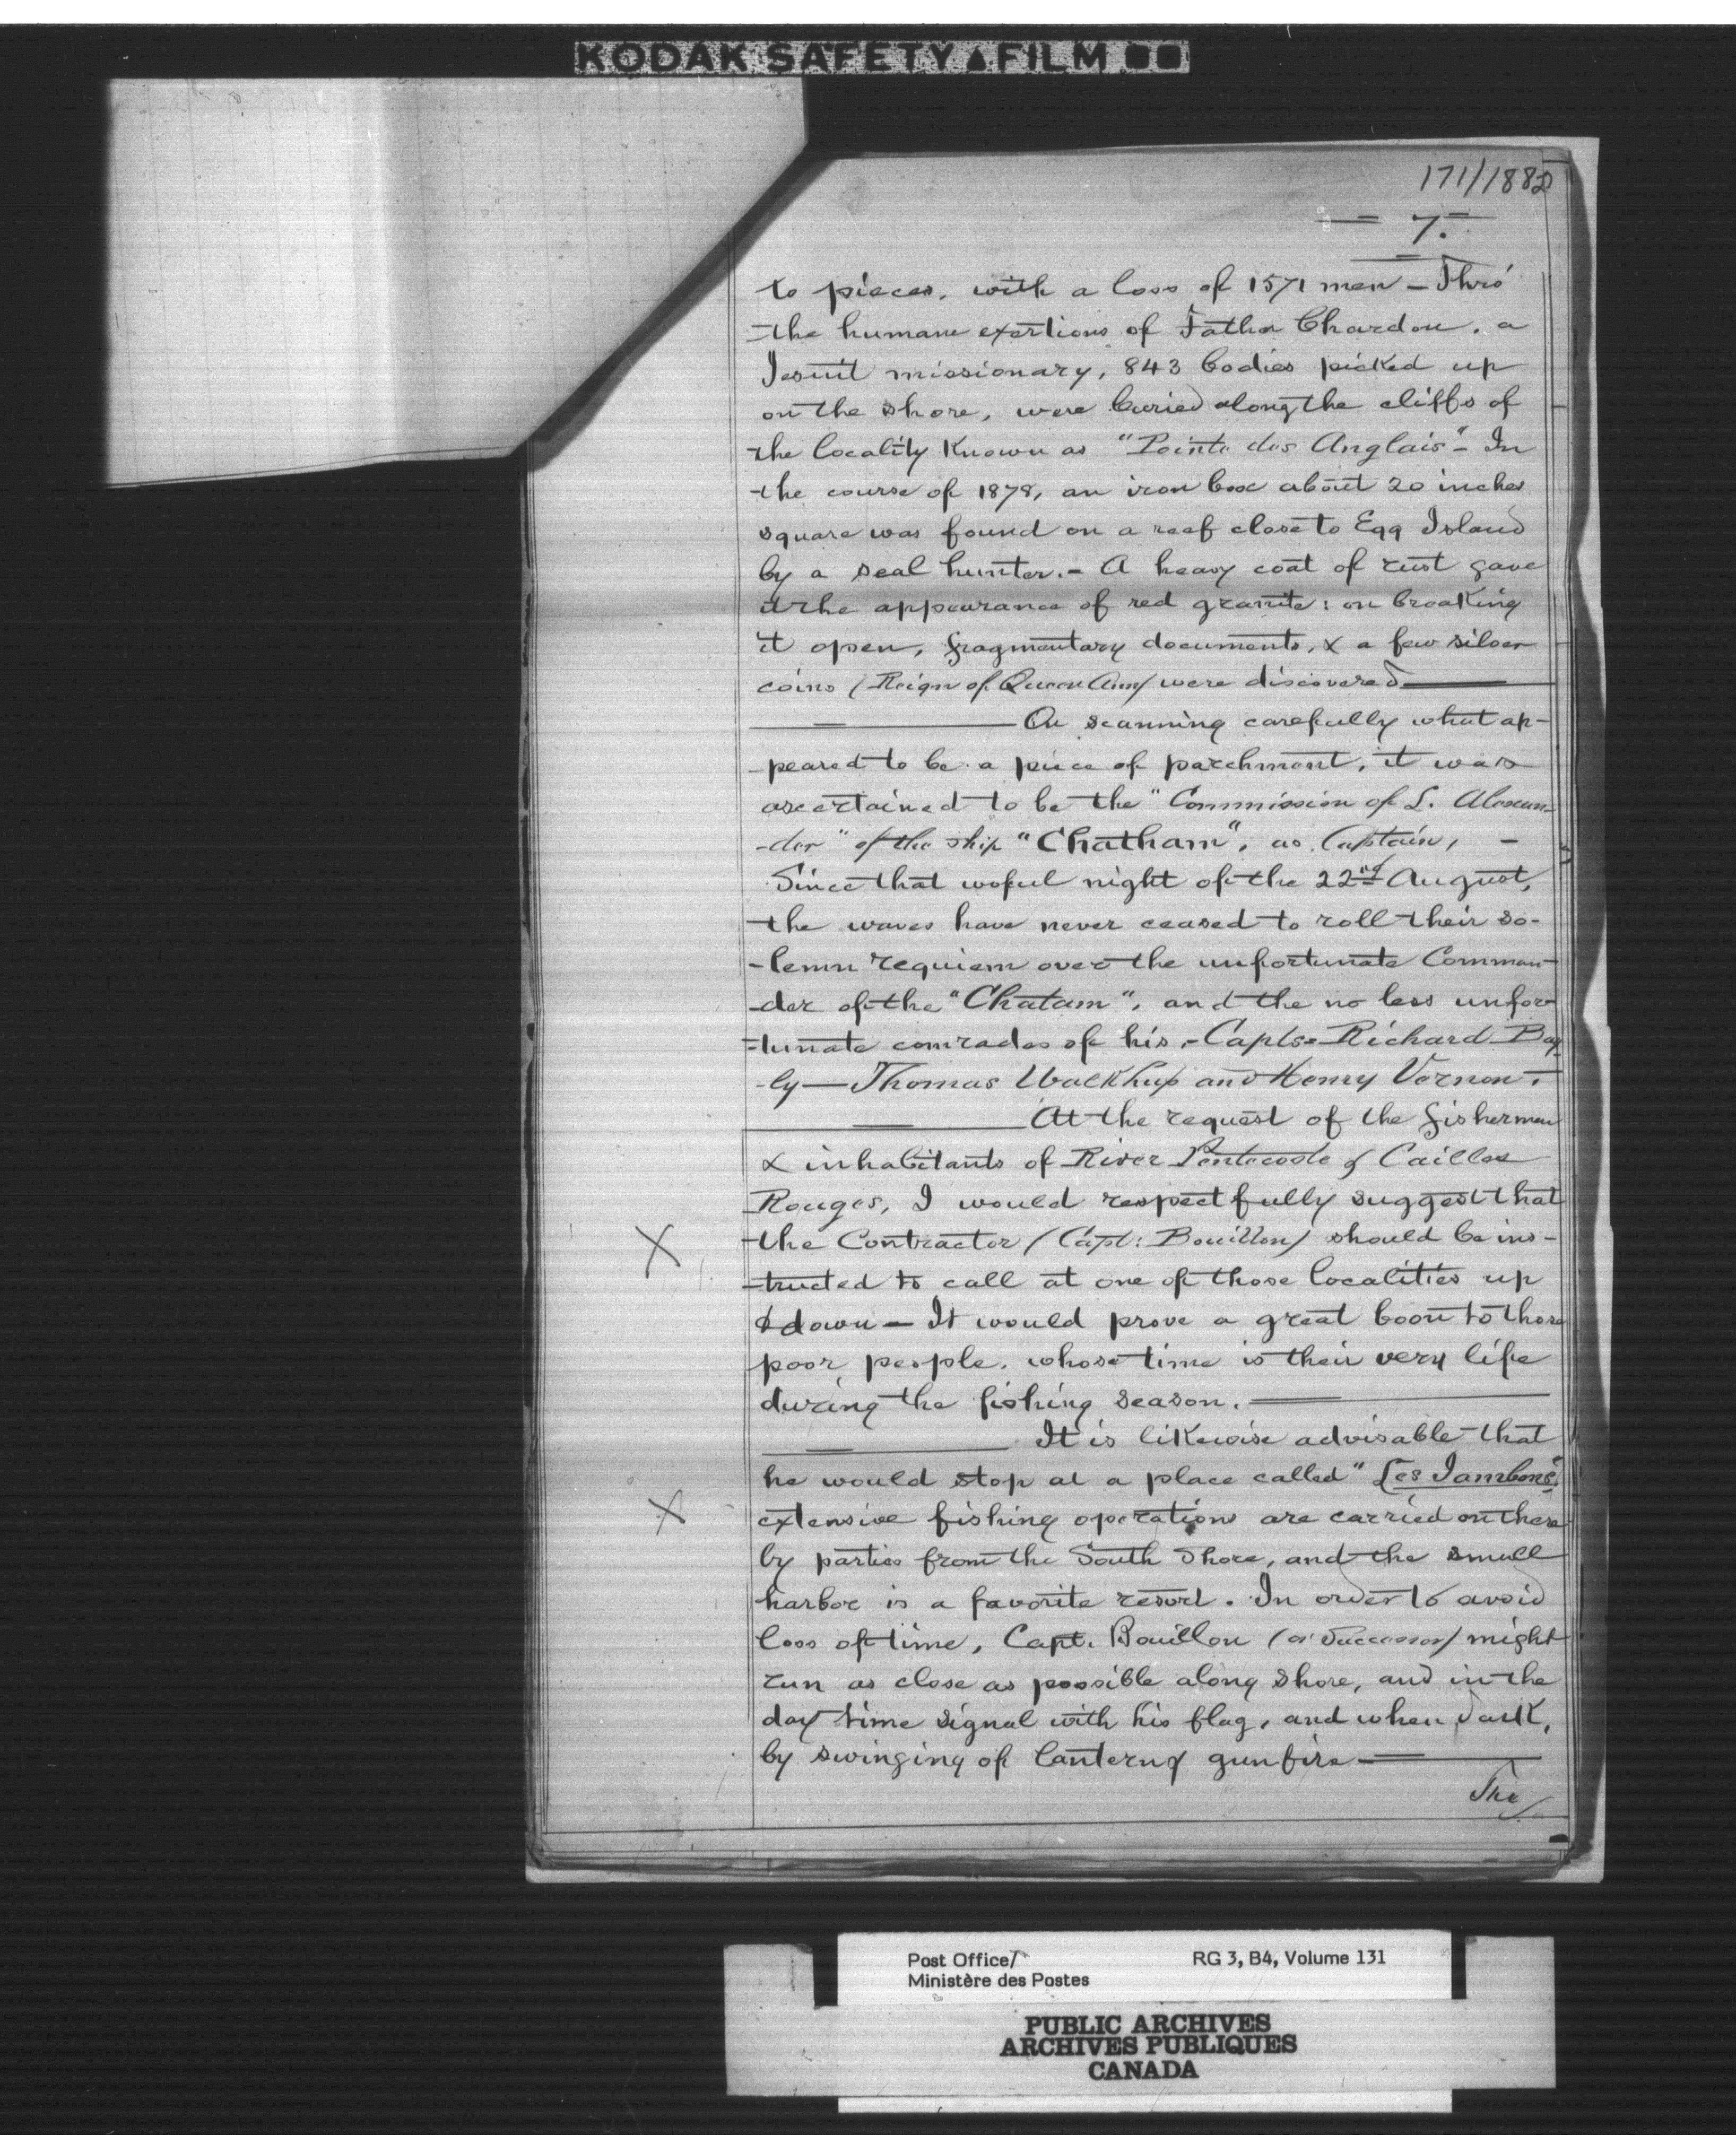 KODAK SAFETY FILM
171/1882
- 7. -
to pieces, with a loss of 1571 men - Thro'
the humane exertions of Father Chardon, a
Jesuit missionary, 843 bodies picked up
on the shore, were buried along the cliffs of
the locality known as "Pointe des Anglais" - In
the course of 1878, an iron box about 20 inches
square was found on a reef close to Egg Island
by a seal hunter. - A heavy coat of rust gave
it the appearance of red granite: on breaking
it open, fragmentary documents, & a few silver
coins (Reign of Queen Ann) were discovered
On scanning carefully what ap-
-peared to be a piece of parchment, it was
ascertained to be the "Commission of L. Alexan-
-der" of the ship "Chatham", as Captain, -
Since that woful night of the 22nd August,
the waves have never ceased to roll their so-
-lemn requiem over the unfortunate Comman-
-der of the "Chatam", and the no less unfor-
-tunate comrades of his, - Capts= Richard Bay-
-ly - Thomas Walkhup and Henry Vernon. -
At the request of the fishermen
& inhabitants of River Pentecoste & Cailles
Rouges, I would respectfully suggest that
X the Contractor (Capt: Bouillon) should be ins-
-tructed to call at one of those localities up
& down - It would prove a great boon to those
poor people, whose time is their very life
during the fishing season.
It is likewise advisable that
he would stop at a place called "Les Jambons"
X extensive fishing operations are carried on there
by parties from the South Shore, and the small
harbor is a favorite resort. In order to avoid
loss of time, Capt. Bouillon (or Successor) might
run as close as possible along shore, and in the
day time signal with his flag, and when dark,
by swinging of lantern & gun fire -
The
Post Office/ RG 3, B4, Volume 131
Ministère des Postes
PUBLIC ARCHIVES
ARCHIVES PUBLIQUES
CANADA